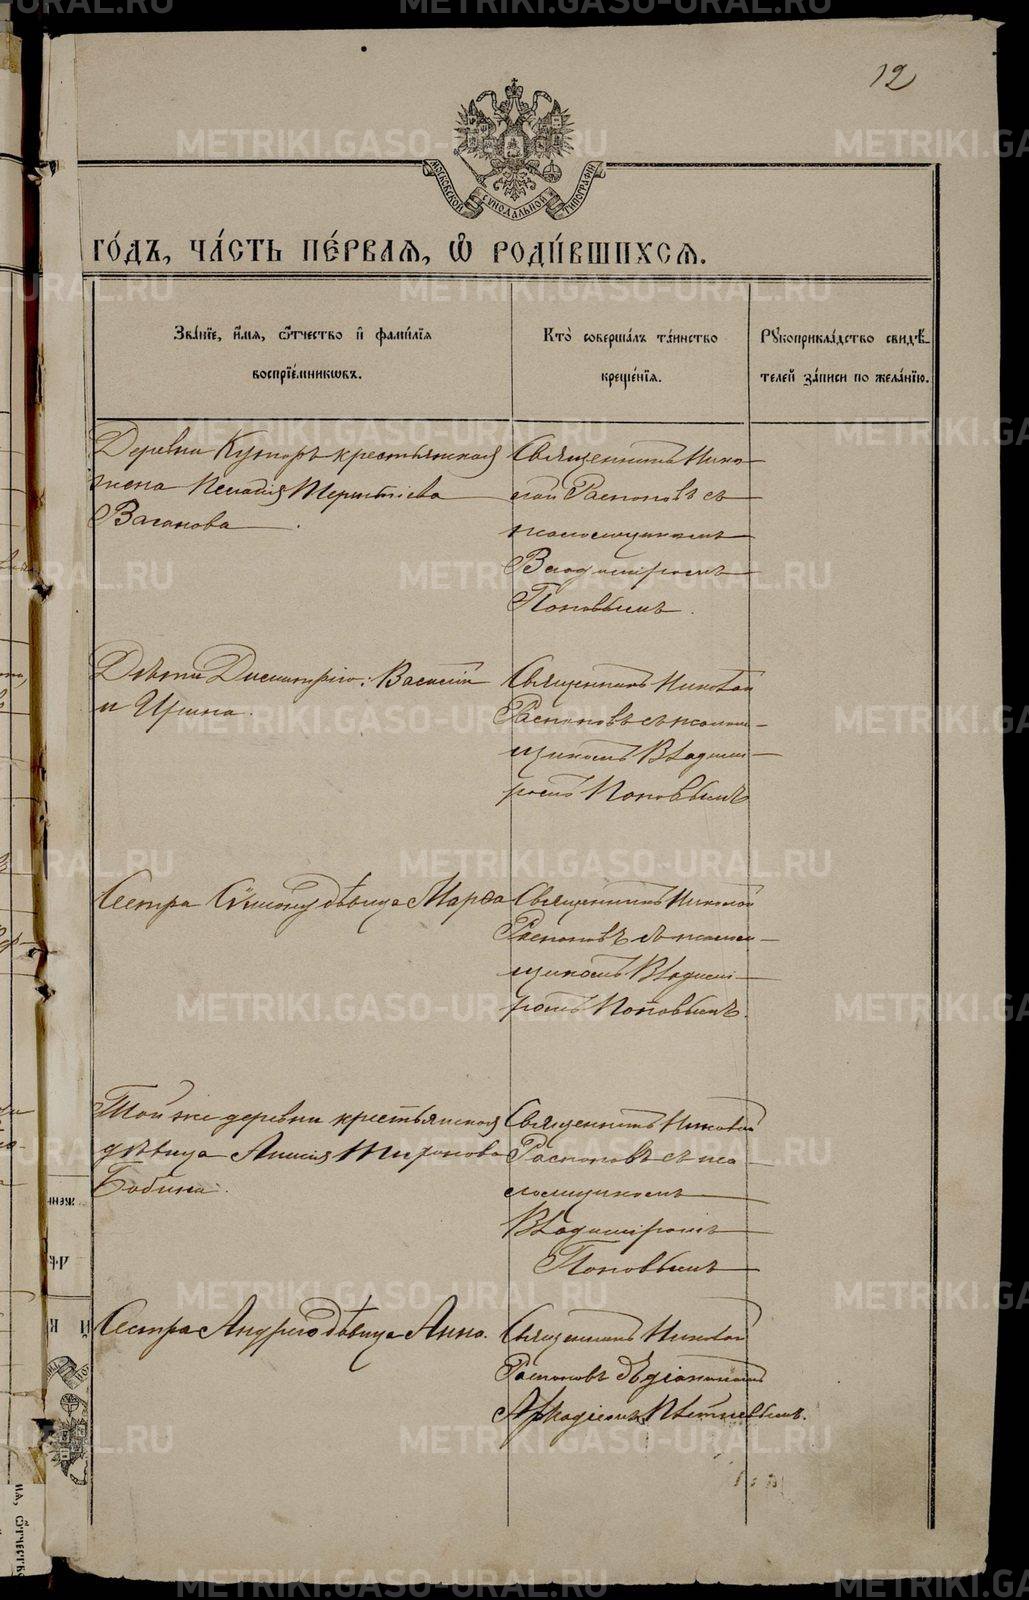 12
МОСКОВСКОЙ СѴНОДАЛЬНОЙ ТИПОГРАФІИ
ГО́ДЪ, ЧА́СТЬ ПЕ́РВАѦ, Ѡ҆ РОДИ́ВШИХСѦ.
Зва́нїе, и҆́мѧ, ѻ҆́тчество и҆ фами́лїѧ
воспрїе́мникѡвъ.
Кто̀ соверша́лъ та́инство
креще́нїѧ.
Рꙋкоприкла́дство свидѣ́-
телей за́писи по жела́нїю.
Деревни крестьянская
жена
Ваганова
Священникъ Нико-
лай Распоповъ съ
псаломщикомъ
Владиміромъ
Поповымъ.
Дѣти Димитрію: Василій
и Ирина.
Священникъ Николай
Распоповъ съ псалом-
щикомъ Владими-
ромъ Поповымъ
Сестра дѣвица Марѳа
Священникъ Николай
Распоповъ съ псалом-
щикомъ Владими-
ромъ Поповымъ.
Той же деревни крестьянская
дѣвица Миронова
Бабина.
Священникъ Николай
Распоповъ съ пса-
ломщикомъ
Владиміромъ
Поповымъ
Сестра Андрею дѣвица Анна.
Священникъ Николай
Распоповъ съ діакономъ
Аркадіемъ
METRIKI.GASO-URAL.RU